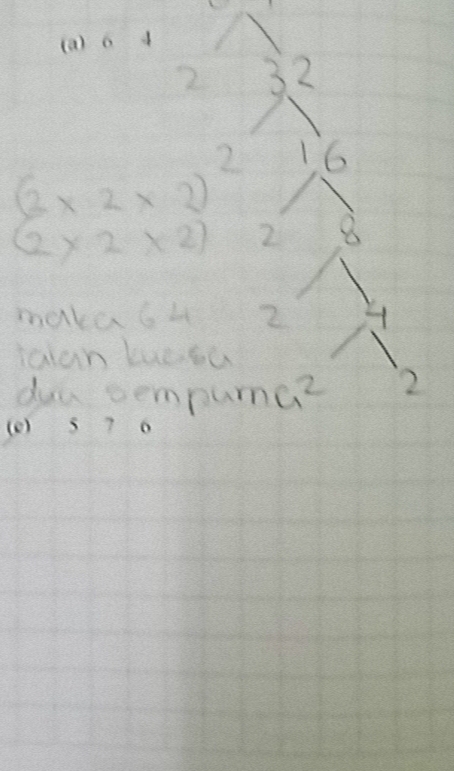 (a) 6 4
2 32
2 16
(2 × 2 × 2)
(2 × 2 × 2) 2 8
maka 64 2 4
ialah kuasa
dua sempurna 2 2
(c) 5 7 6